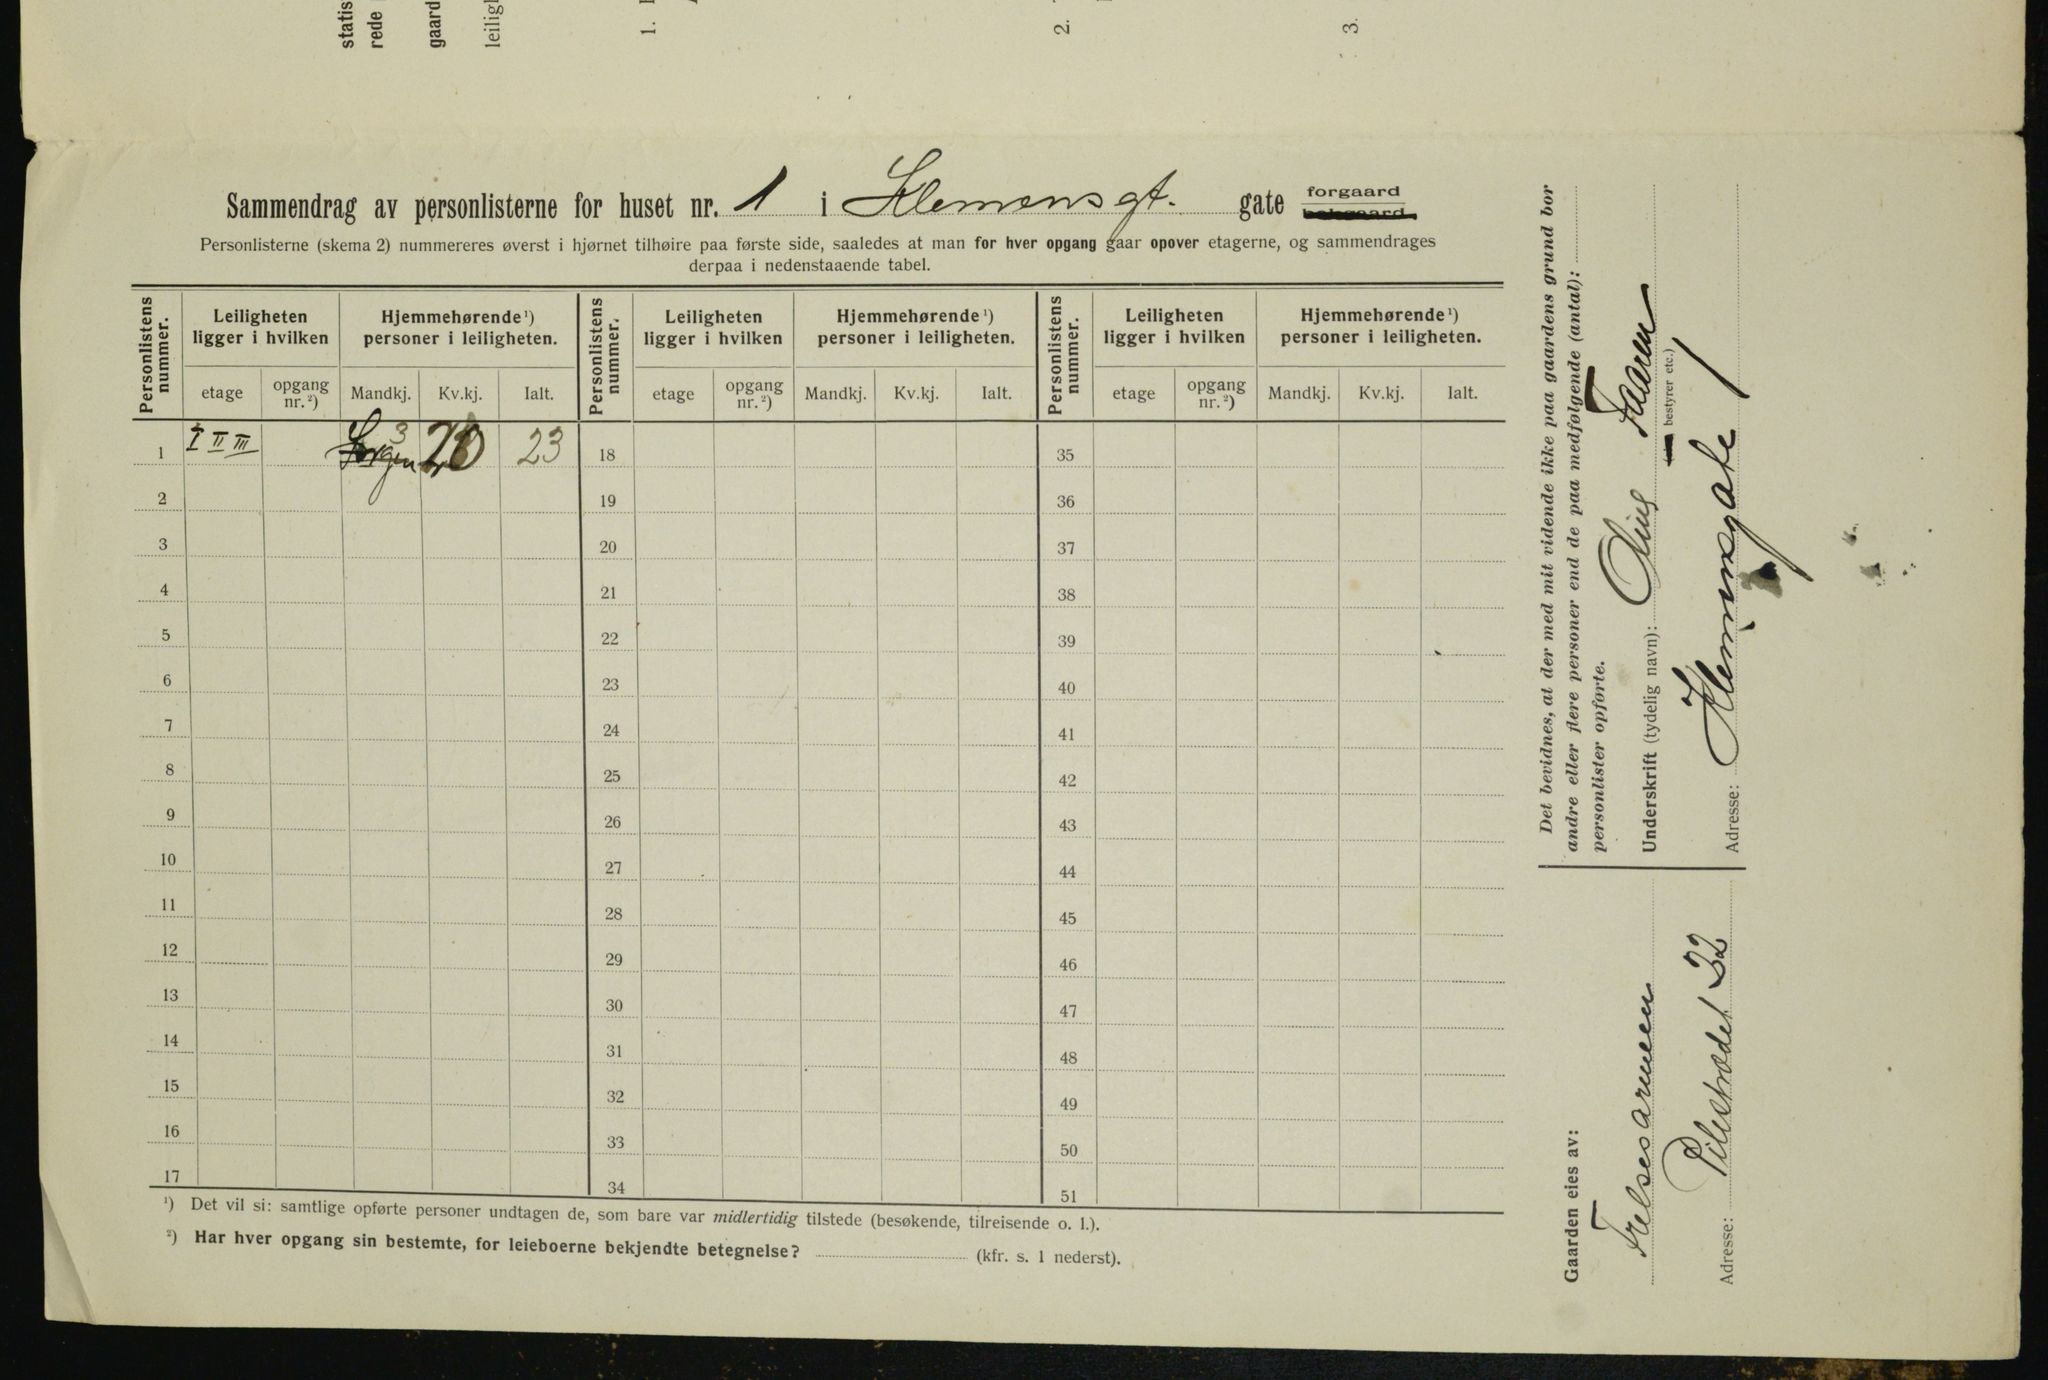 statis
rede
gaard
leiligh
1.
2.
3.
Sammendrag av personlisterne for huset nr. 1 i Klemensgt. gate forgaard
bakgaard
Personlisterne (skema 2) nummereres øverst i hjørnet tilhøire paa første side, saaledes at man for hver opgang gaar opover etagerne, og sammendrages
derpaa i nedenstaaende tabel.
Personlistens nummer. Leiligheten ligger i hvilken Hjemmehørende ¹) personer i leiligheten. Personlistens nummer. Leiligheten ligger i hvilken Hjemmehørende ¹) personer i leiligheten. Personlistens nummer. Leiligheten ligger i hvilken Hjemmehørende ¹) personer i leiligheten.
etage opgang nr. ²) Mandkj. Kv.kj. Ialt. etage opgang nr. ²) Mandkj. Kv.kj. Ialt. etage opgang nr. ²) Mandkj. Kv.kj. Ialt.
1 I II III 3 20 23 18 35
2 19 36
3 20 37
4 21 38
5 22 39
6 23 40
7 24 41
8 25 42
9 26 43
10 27 44
11 28 45
12 29 46
13 30 47
14 31 48
15 32 49
16 33 50
17 34 51
¹) Det vil si: samtlige opførte personer undtagen de, som bare var midlertidig tilstede (besøkende, tilreisende o. l.).
²) Har hver opgang sin bestemte, for leieboerne bekjendte betegnelse? (kfr. s. 1 nederst).
Det bevidnes, at der med mit vidende ikke paa gaardens grund bor
andre eller flere personer end de paa medfølgende (antal):
personlister opførte.
Underskrift (tydelig navn):
bestyrer etc.)
Adresse: Klemensgate 1
Gaarden eies av:
Frelsesarmeen
Adresse: Pilestrædet 32